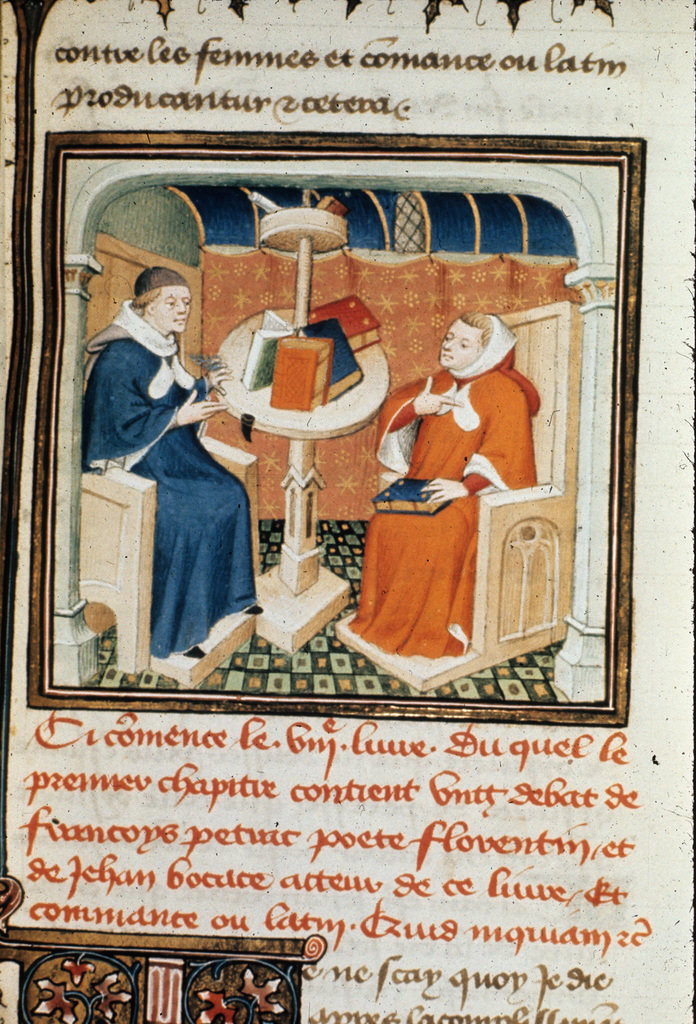 contre les femmes et cōmance ou latin
producantur ⁊ cetera.
Ci cōmence le .viiiͤ. livre. Du quel le
premier chapitre contient vng debat de
francoys petrac poete florentin, et
de Jehan bocace acteur de ce livre, Et
commance ou latin. Quid inquiam ⁊c̄
e ne scay quoy Je die
apres